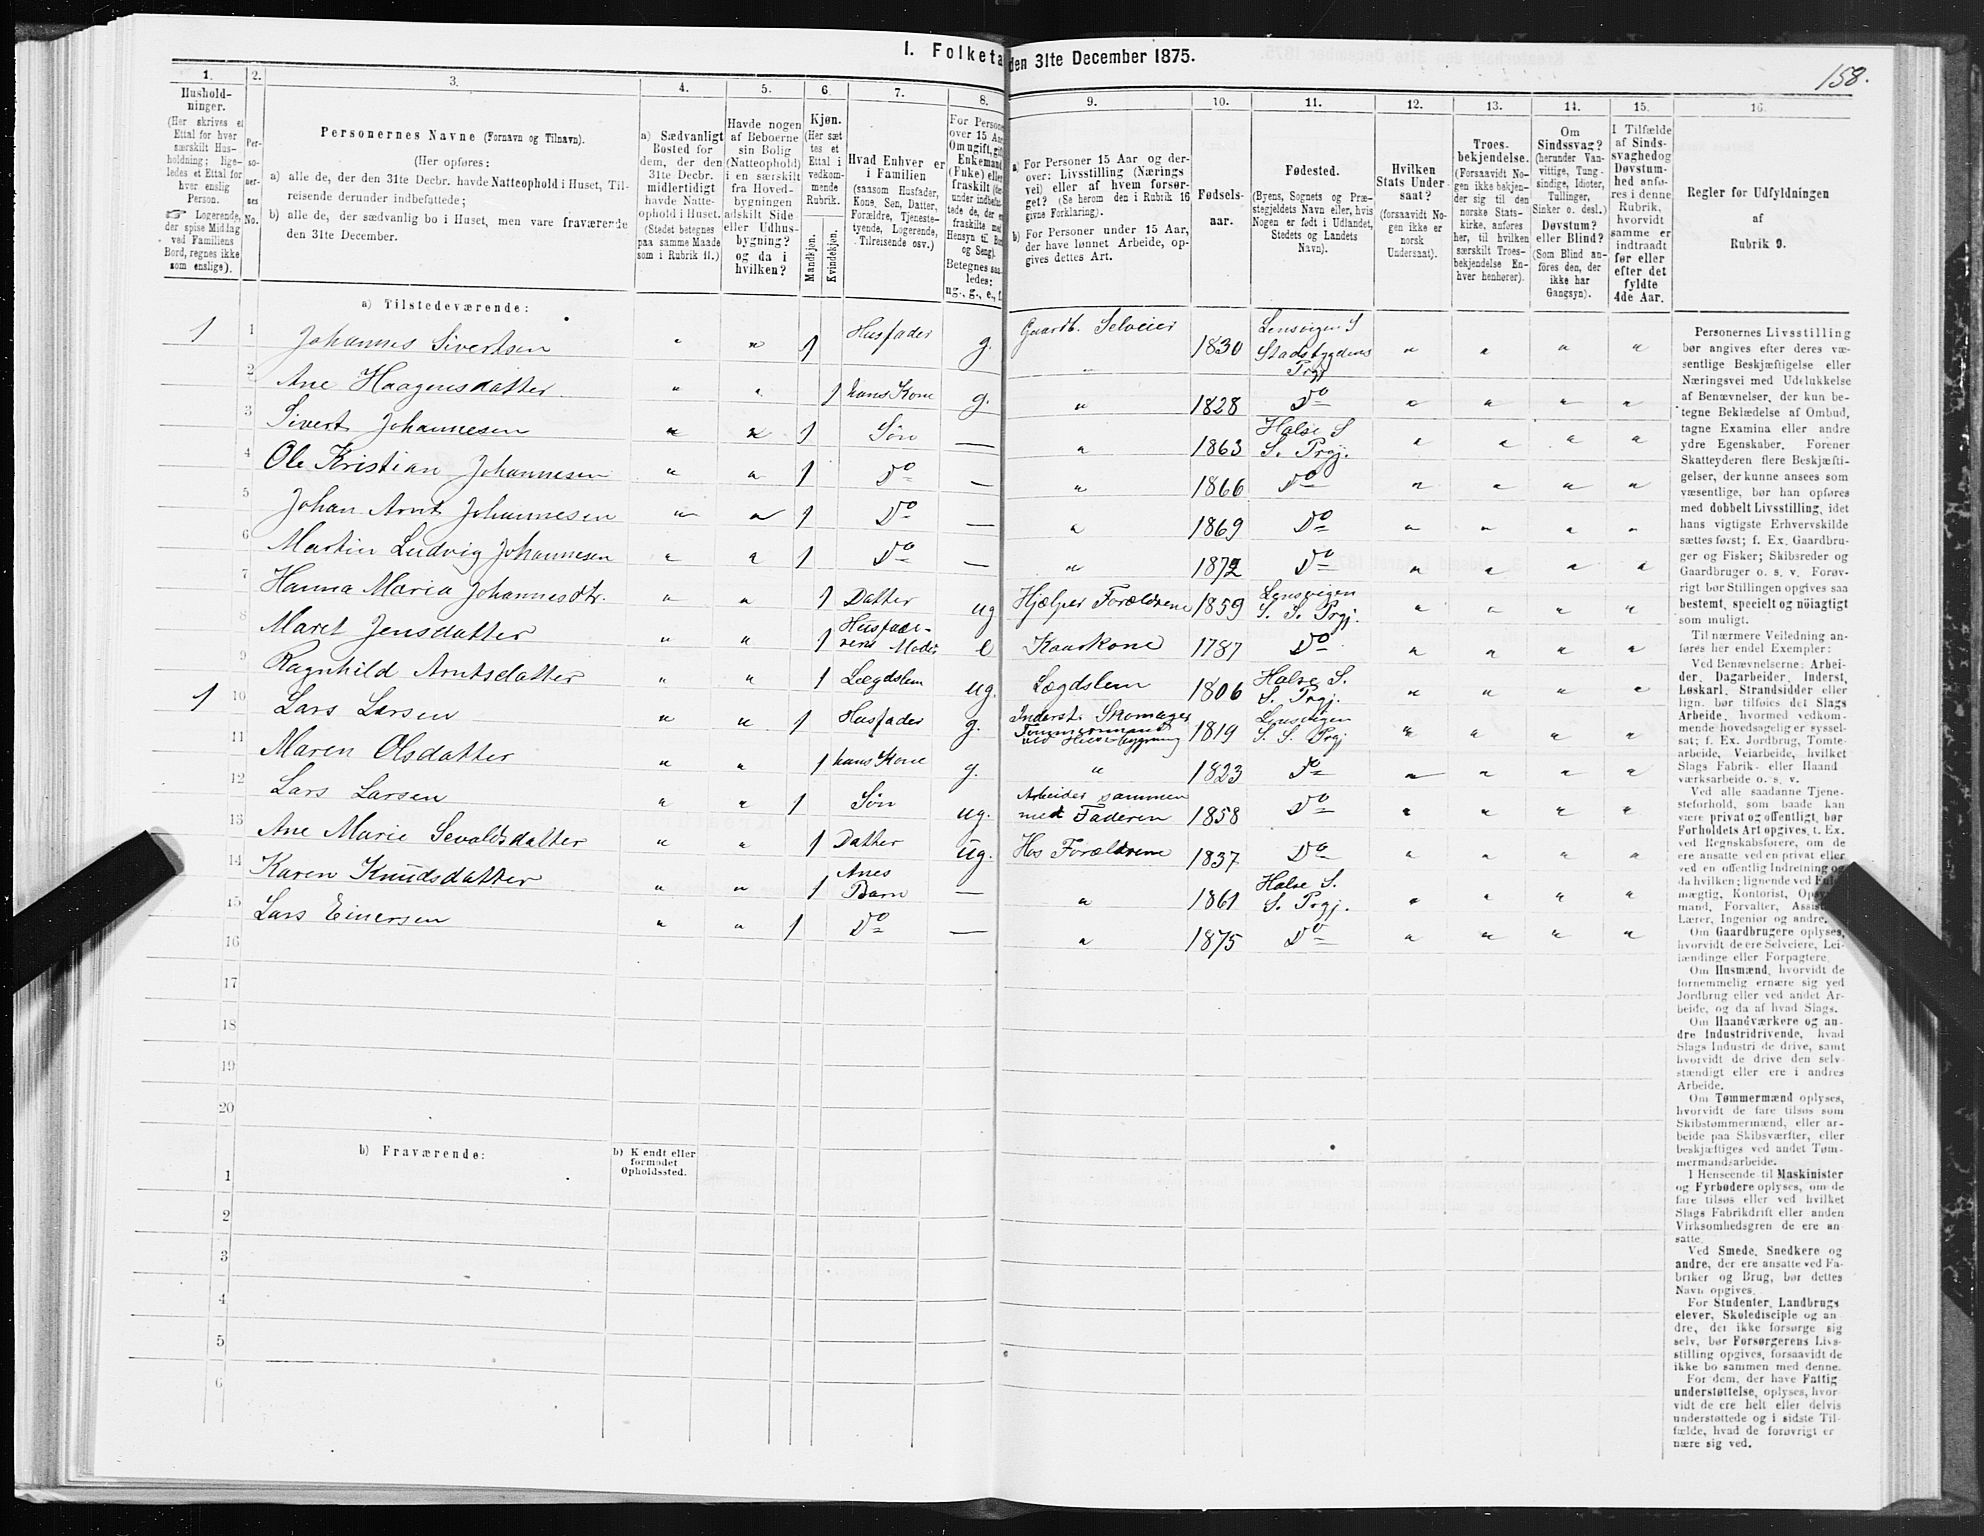 I. Folketa den 31te December 1875.
158.
1. 2. 3. 4. 5. 6. 7. 8. 9. 10. 11. 12. 13. 14. 15. 16.
Hushold-
ninger.
(Her skrives et
Ettal for hver
særskilt Hus-
holdning; lige-
ledes et Ettal for
hver enslig
Person.
☞ Logerende,
der spise Middag
ved Familiens
Bord, regnes ikke
som enslige).
Per-
so-
ner-
nes
No.
Personernes Navne (Fornavn og Tilnavn).
(Her opføres:
a) alle de, der den 31te Decbr. havde Natteophold i Huset, Til-
reisende derunder indbefattede;
b) alle de, der sædvanlig bo i Huset, men vare fraværende
den 31te December.
a) Sædvanligt
Bosted for
dem, der den
31te Decbr.
midlertidigt
havde Natte-
ophold i Huset.
(Stedet betegnes
paa samme Maade
som i Rubrik 11.)
Havde nogen
af Beboerne
sin Bolig
(Natteophold)
i en særskilt
fra Hoved-
bygningen
adskilt Side
eller Udhus-
bygning?
og da i
hvilken?
Kjøn.
(Her sæt-
tes et
Ettal i
vedkom-
mende
Rubrik.
Mandkjøn.
Kvindekjøn.
Hvad Enhver er
i Familien
(saasom Husfader,
Kone, Søn, Datter,
Forældre, Tjeneste-
tyende, Logerende,
Tilreisende osv.)
For Persone
over 15 Aar
Om ugift, gift
Enkemand
(Enke) eller
fraskilt (der-
under indbefat-
tede de, der er
fraskilte med
Hensyn til Bord
og Seng).
Betegnes saa-
ledes:
ug., g., e., f.
a) For Personer 15 Aar og der-
over: Livsstilling (Nærings
vei) eller af hvem forsør-
get? (Se herom den i Rubrik 16
givne Forklaring).
b) For Personer under 15 Aar,
der have lønnet Arbeide, op-
gives dettes Art.
Fødsels-
aar.
Fødested.
(Byens, Sognets og Præ-
stegjeldets Navn eller, hvis
Nogen er født i Udlandet,
Stedets og Landets
Navn).
Hvilken
Stats Under
saat?
(forsaavidt No-
gen ikke er
norsk
Undersaat).
Troes-
bekjendelse.
(Forsaavidt No-
gen ikke bekjen-
der sig til den
norske Stats-
kirke, anføres
her, til hvilken
særskilt Troes-
bekjendelse En-
hver henhører).
Om
Sindssvag?
(herunder Van-
vittige, Tung-
sindige, Idioter,
Tullinger,
Sinker o. desl.)
Døvstum?
eller Blind?
(Som Blind an-
føres den, der
ikke har
Gangsyn).
I Tilfælde
af Sinds-
svaghed og
Døvstum-
hed anfø-
res i denne
Rubrik,
hvorvidt
samme er
indtraadt
før eller
efter det
fyldte
4de Aar.
Regler for Udfyldningen
af
Rubrik 9.
a) Tilstedeværende:
1 1 Johannes Sivertsen " " 1 Husfader g. Gaardb. Selveier 1830 Lensvigen S Stadsbygdens Prgj " " " "
2 Ane Haagensdatter " " 1 hans Kone g. " 1828 Do " " " "
3 Sivert Johannesen " " 1 Søn — " 1863 Halse S S. Prgj. " " " "
4 Ole Kristian Johannesen " " 1 Do — " 1866 Do " " " "
5 Johan Arnt Johannesen " " 1 Do — " 1869 Do " " " "
6 Martin Ludvig Johannesen " " 1 Do — " 1872 Do " " " "
7 Hanna Maria Johannesdtr. " " 1 Datter ug Hjælper Forældrene 1859 Lensvigen S. S. Prgj. " " " "
8 Maret Jensdatter " " 1 Husfade- rens Moder e Kaarkone 1787 Do " " " "
9 Ragnhild Arntsdatter " " 1 Lægdslem ug. Lægdslem 1806 Halse S. S. Prgj. " " " "
1 10 Lars Larsen " " 1 Husfader g. Inderst. Skomager Tømmermand ved Husebygning 1819 Lensvigen S. S. Prgj " " " "
11 Maren Olsdatter " " 1 hans Kone g. " 1823 Do " " " "
12 Lars Larsen " " 1 Søn ug. Arbeider sammen med Faderen 1858 Do " " " "
13 Ane Marie Sevaldsdatter " " 1 Datter ug. Hos Forældrene 1837 Do " " " "
14 Karen Knudsdatter " " 1 Anes Barn — " 1861 Halse S. S. Prgj. " " " "
15 Lars Einersen " " 1 Do — " 1875 Do " " " "
16
17
18
19
20
b) Fraværende:
b) Kendt eller
formodet
Opholdssted.
1
2
3
4
5
6
Personernes Livsstilling
bør angives efter deres væ-
sentlige Beskjæftigelse eller
Næringsvei med Udelukkelse
af Benævnelser, der kun be-
tegne Beklædelse af Ombud,
tagne Examina eller andre
ydre Egenskaber. Forener
Skatteyderen flere Beskjæfti-
gelser, der kunne ansees som
væsentlige, bør han opføres
med dobbelt Livsstilling, idet
hans vigtigste Erhvervskilde
sættes først; f. Ex. Gaardbru-
ger og Fisker; Skibsreder og
Gaardbruger o. s. v. Forøv-
rigt bør Stillingen opgives saa
bestemt, specielt og nöiagtigt
som muligt.
Til nærmere Veiledning an-
føres her endel Exempler:
Ved Benævnelserne: Arbei-
der, Dagarbeider, Inderst,
Løskarl, Strandsidder eller
lign. bør tilføies det Slags
Arbeide, hvormed vedkom-
mende hovedsagelig er syssel-
sat; f. Ex. Jordbrug, Tomte-
arbeide, Veiarbeide, hvilket
Slags Fabrik- eller Haand
værksarbeide o. s. v.
Ved alle saadanne Tjene-
steforhold, som baade kan
være privat og offentligt, bør
Forholdets Art opgives, t. Ex.
ved Regnskabsførere, om de
ere ansatte ved en privat eller
ved en offentlig Indretning og
da hvilken; lignende ved Ful
mægtig, Kontorist, Opsyns
mand, Forvalter, Assist
Lærer, Ingeniør og andre.
Om Gaardbrugere oplyses,
hvorvidt de ere Selveiere, Lei-
lændinge eller Forpagtere.
Om Husmænd, hvorvidt de
fornemmelig ernære sig ved
Jordbrug eller ved andet Ar-
beide, og da af hvad Slags.
Om Haandværkere og an-
dre Industridrivende, hvad
Slags Industri de drive, samt
hvorvidt de drive den selv-
stændigt eller ere i andres
Arbeide.
Om Tømmermænd oplyses,
hvorvidt de fare tilsøs som
Skibstømmermænd, eller ar-
beide paa Skibsværfter, eller
beskjæftiges ved andet Tøm-
mermandsarbeide.
I Henseende til Maskinister
og Fyrbødere oplyses, om de
fare tilsøs eller ved hvilket
Slags Fabrikdrift eller anden
Virksomhedsgren de ere an-
satte.
Ved Smede, Snedkere og
andre, der ere ansatte ved Fa-
briker og Brug, bør dettes
Navn opgives.
For Studenter, Landbrugs
elever, Skoledisciple og an
dre, der ikke forsørge sig
selv, bør Forsørgerens Livs-
stilling opgives, forsaavidt de
ikke bo sammen med denne.
For dem, der have Fattig
understøttelse, oplyses, hvor-
vidt de ere helt eller delvis
understøttede og i sidste Til-
fælde, hvad de forøvrigt er
nære sig ved.